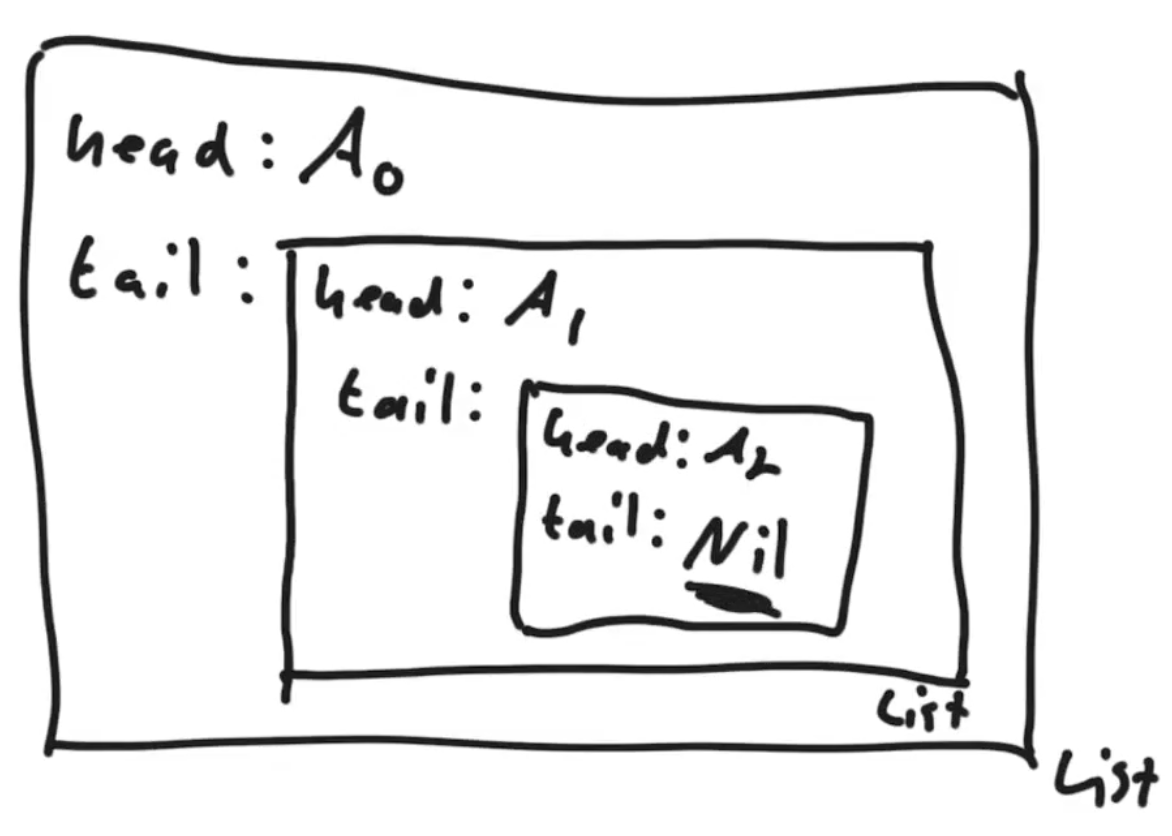 head: A₀
tail:
head: A₁
tail:
head: A₂
tail: Nil
List
List